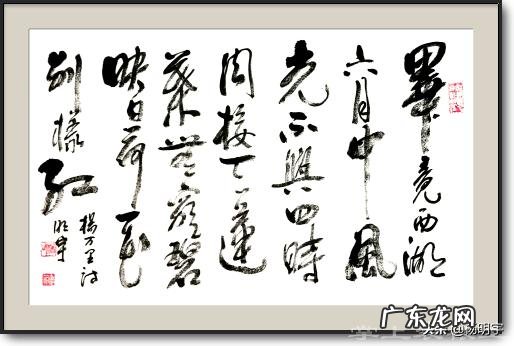 畢竟西湖
六月中風
光不與四時
同接天蓮
葉無窮碧
映日荷花
别樣紅
楊万里诗
明宇
广东龙网
头条
明宇
掌上